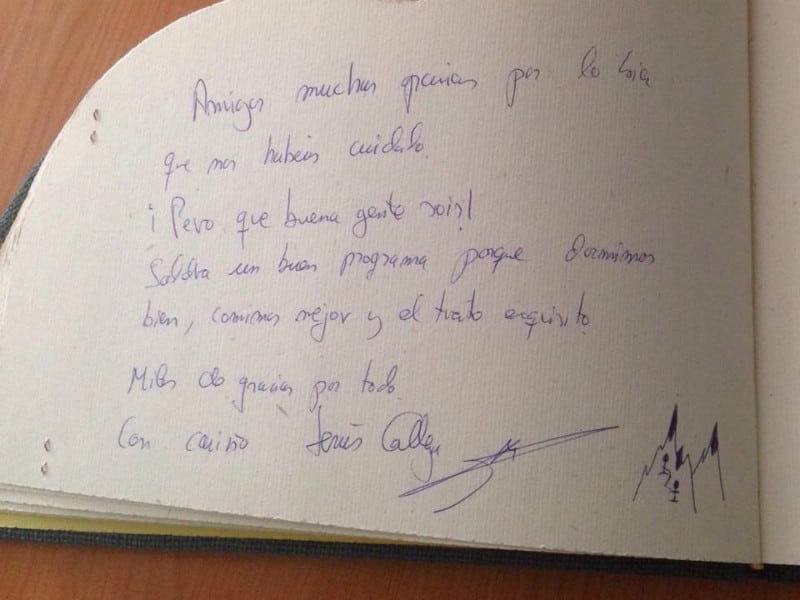 Amigos muchas gracias por lo bien
que nos habéis cuidado.
¡Pero que buena gente sois!
Saldrá un buen programa porque dormimos
bien, comimos mejor y el trato exquisito
Miles de gracias por todo.
Con cariño Jesús Calleja